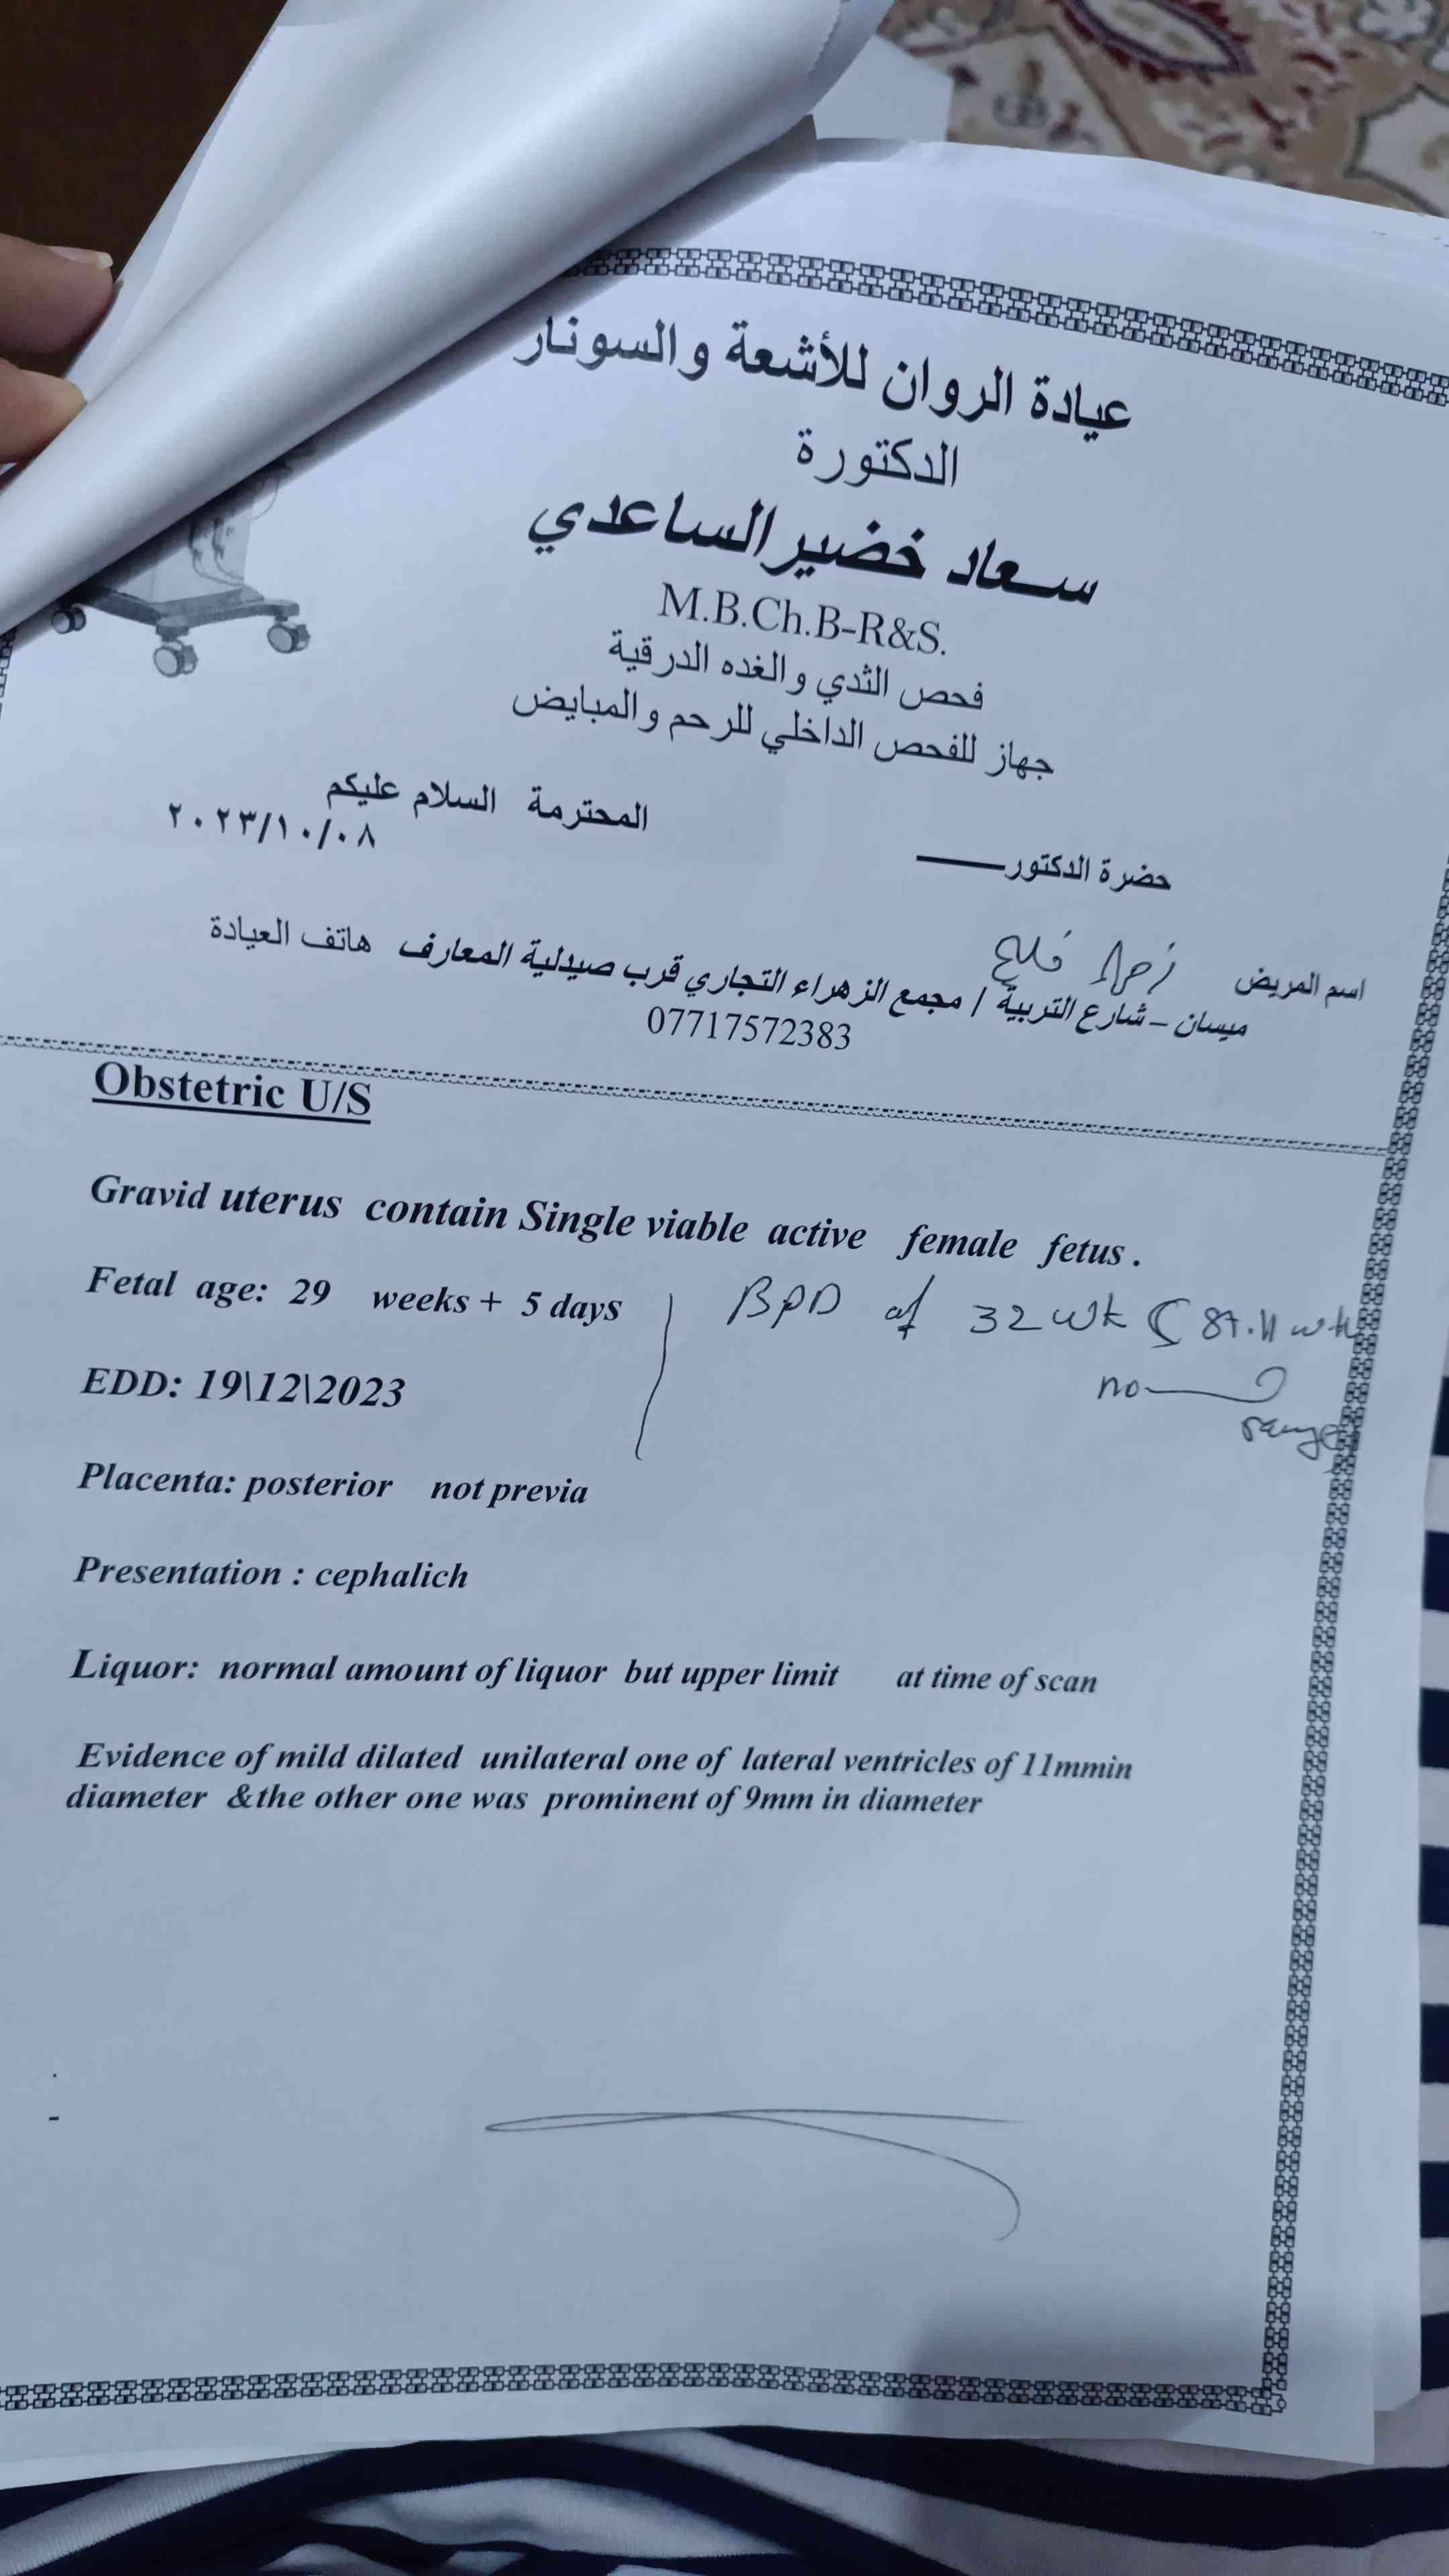 عيادة الروان للأشعة والسونار
الدكتورة
سعاد خضير الساعدي
M.B.Ch.B-R&S.
فحص الثدي والغده الدرقية
جهاز للفحص الداخلي للرحم والمبايض
حضرة الدكتور المحترمة السلام عليكم
٢٠٢٣/١٠/٠٨
اسم المريض زهراء فليح
ميسان – شارع التربية / مجمع الزهراء التجاري قرب صيدلية المعارف هاتف العيادة
07717572383
Obstetric U/S
Gravid uterus contain Single viable active female fetus .
Fetal age: 29 weeks + 5 days
BPD of 32 wk
no
range
EDD: 19\12\2023
Placenta: posterior not previa
Presentation : cephalich
Liquor: normal amount of liquor but upper limit at time of scan
Evidence of mild dilated unilateral one of lateral ventricles of 11mmin
diameter &the other one was prominent of 9mm in diameter